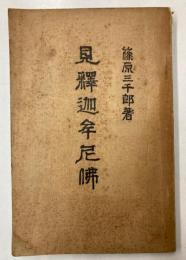 篠原三千郎著
見釋迦牟尼佛